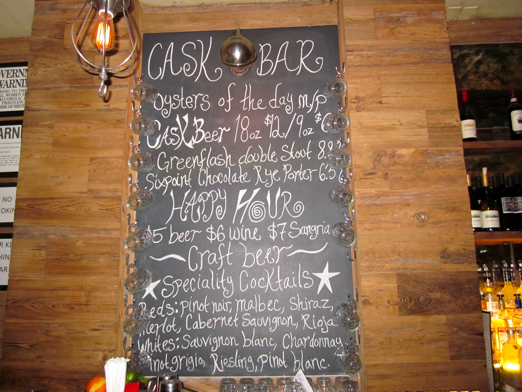 VERN
WARN
CASK BAR
Oysters of the day m/p
Cask Beer 18oz $12/9oz
Greenflash double Stout 8.8%
Sixpoint Chocolate Rye Porter
Happy Hour
$5 beer $6 wine $7 Sangria
Craft beer
Speciality Cocktails
Reds: Pinot noir, Malbec, Shiraz,
Merlot, Cabernet Sauvignon, Rioja
Whites: Sauvignon blanc, Chardonnay
Pinot grigio, Riesling, Pinot blanc